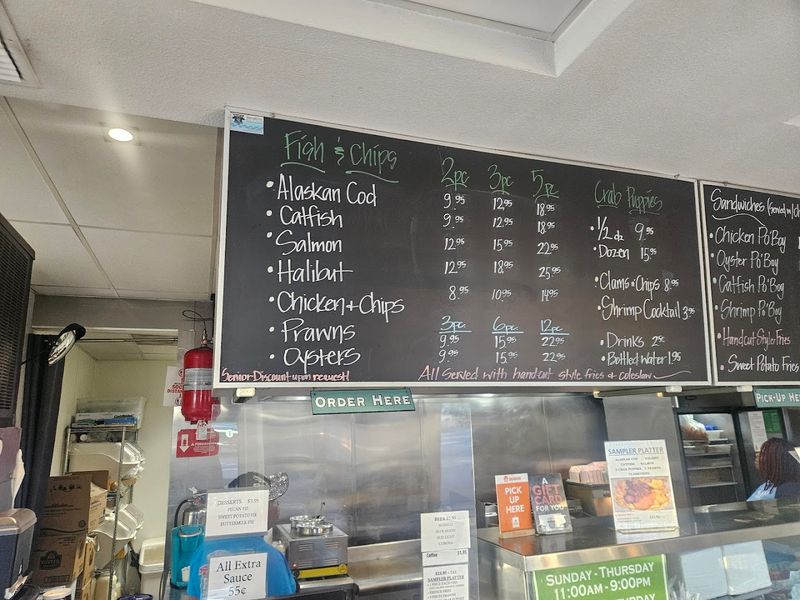 Fish & Chips 2pc 3pc 5pc
Alaskan Cod 9.95 12.95 18.95
Catfish 9.95 12.95 18.95
Salmon 12.95 15.95 22.95
Halibut 12.95 18.95 25.95
Chicken + Chips 8.95 10.95 14.95
3pc 6pc 12pc
Prawns 9.95 15.95 22.95
Oysters 9.95 15.95 22.95
Senior Discount upon request!
All served with handcut style fries & coleslaw
Crab Puppies
1/2 dz 9.95
Dozen 15.95
Clams & Chips 8.95
Shrimp Cocktail 3.95
Drinks
Bottled Water 1.95
Sandwiches
Chicken Po'Boy
Oyster Po'Boy
Catfish Po'Boy
Shrimp Po'Boy
Handcut Style Fries
Sweet Potato Fries
ORDER HERE
PICK-UP
DESSERTS
PECAN PIE
SWEET POTATO PIE
BUTTERMILK
All Extra
Sauce
55¢
Coffee
SAMPLER PLATTER
PICK
UP
HERE
A
GIFT
CARD
FOR
YOU
SAMPLER PLATTER
SUNDAY - THURSDAY
11:00AM - 9:00PM